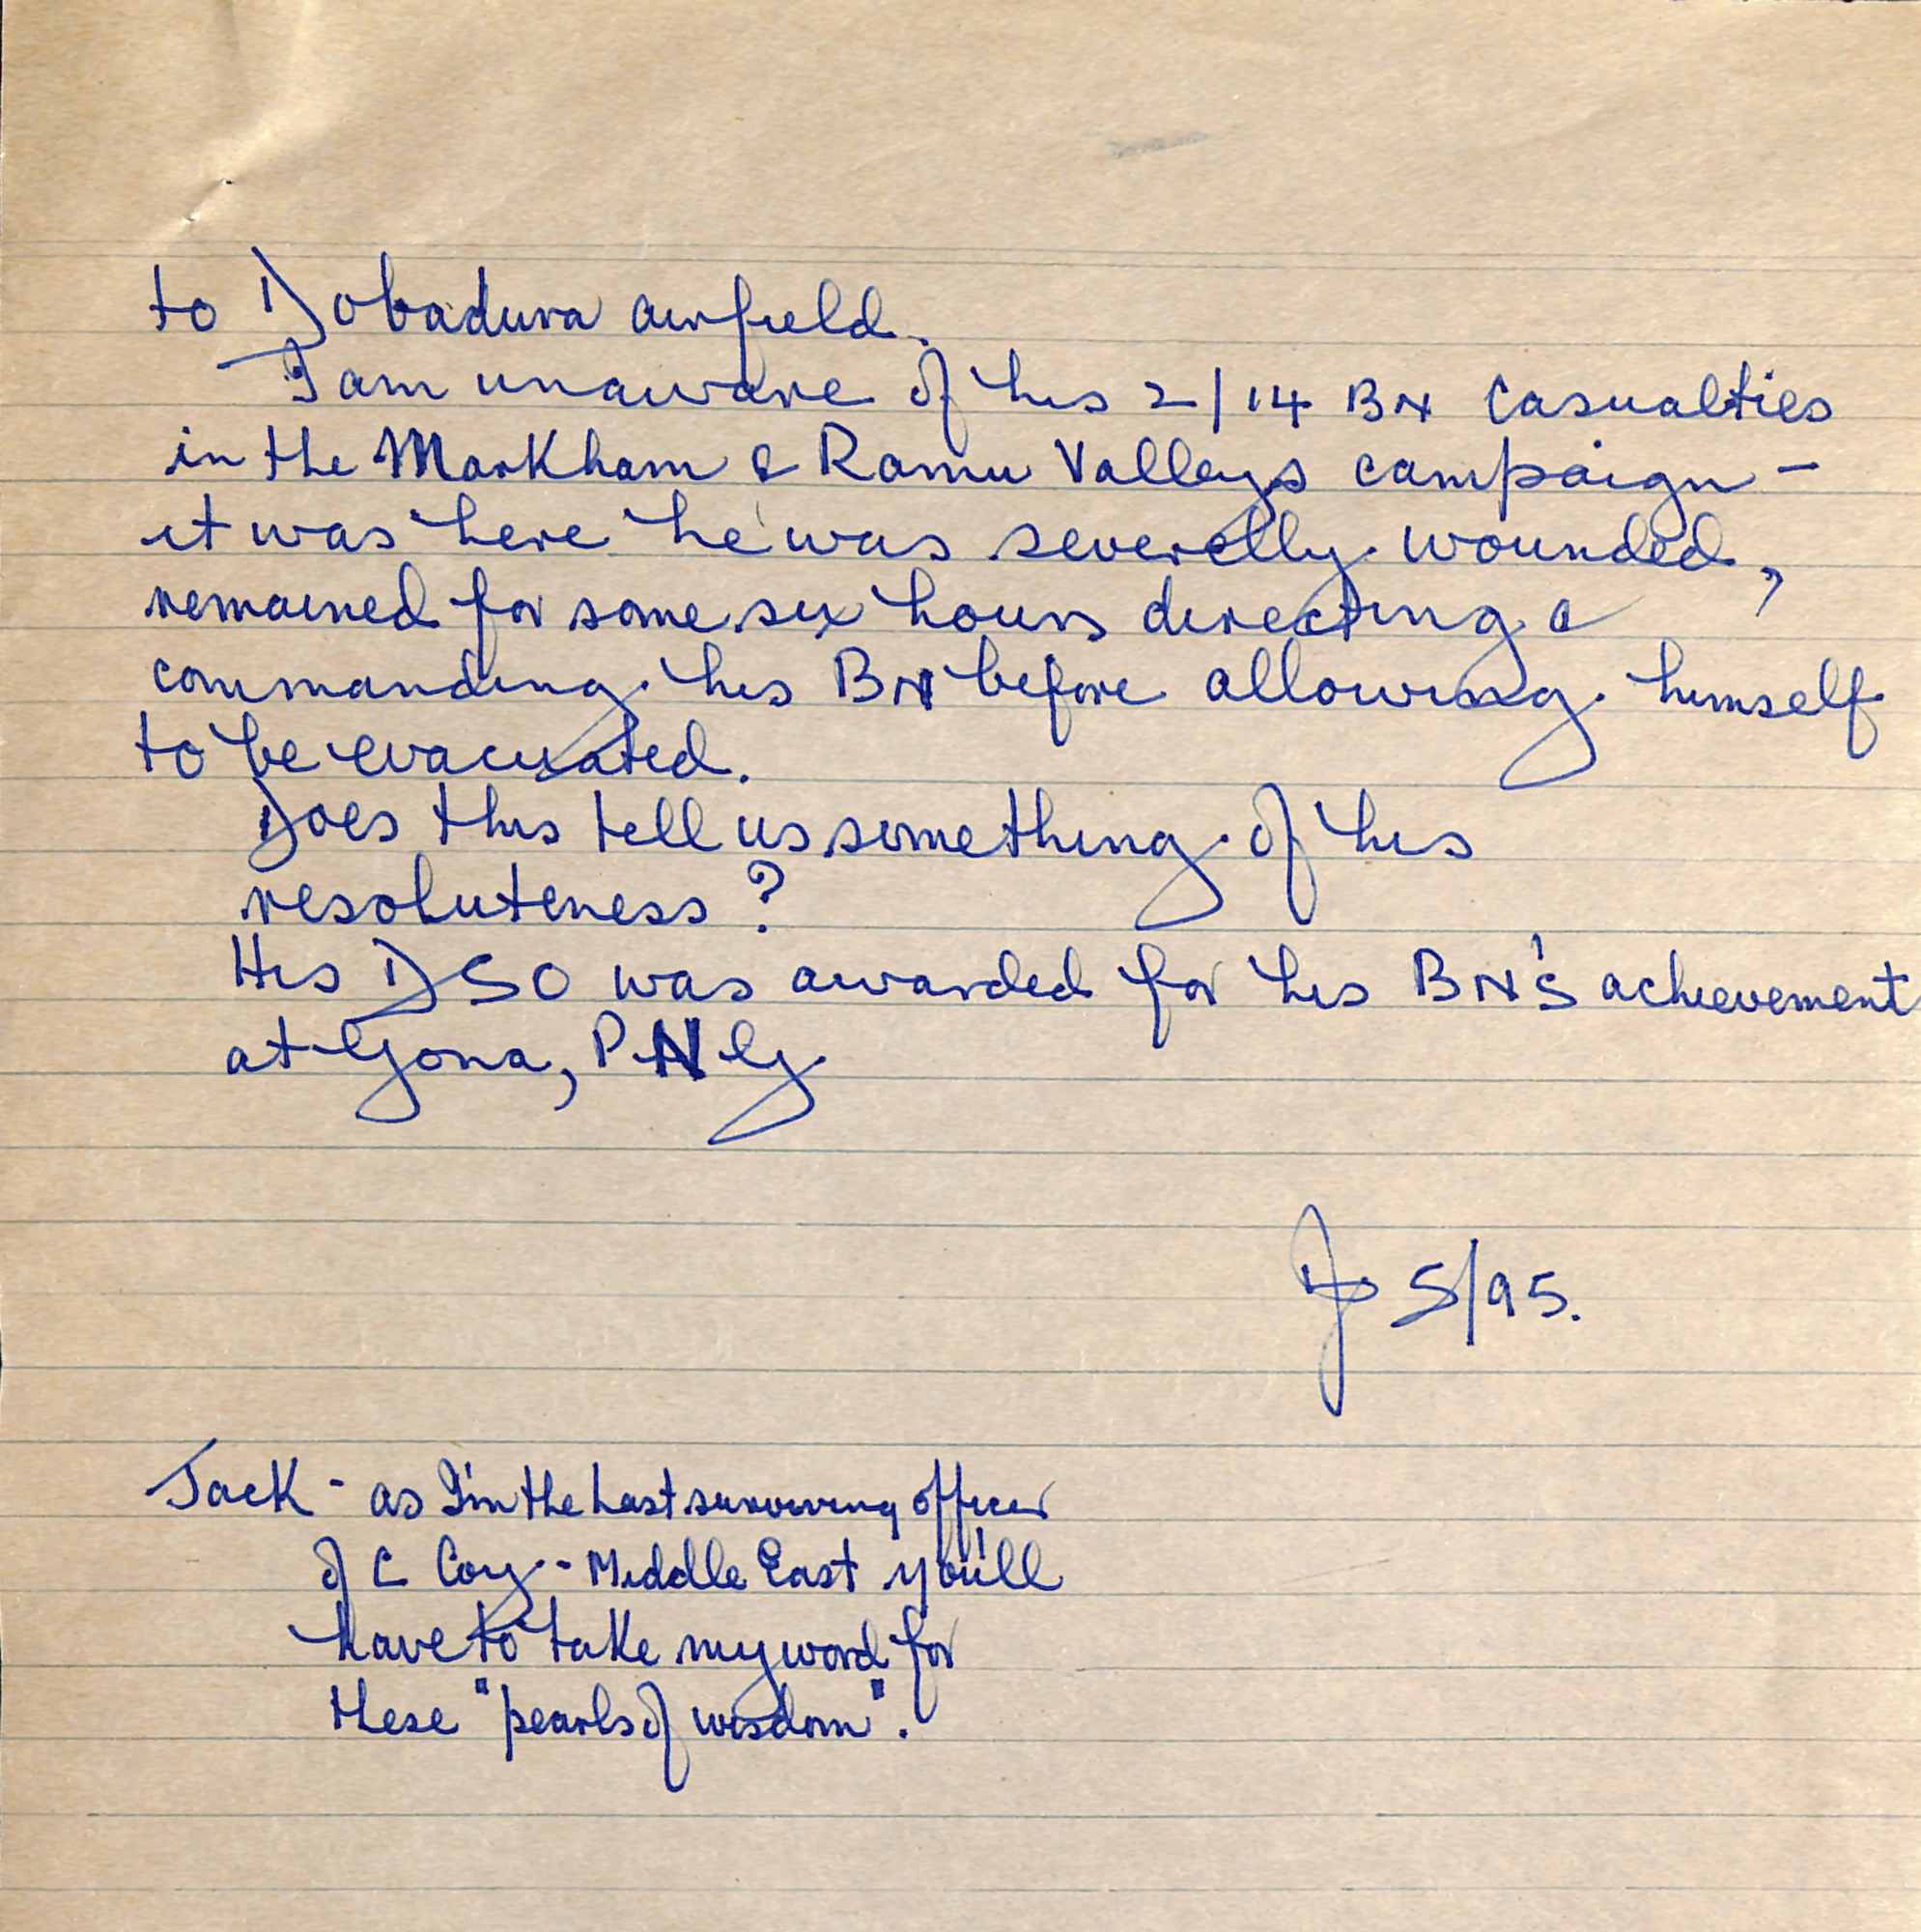 to Dobadura airfield.
I am unaware of his 2/14 BN casualties
in the Markham & Ramu Valleys campaign -
it was here he was severelly wounded,
remained for some six hours directing &
commanding his BN before allowing himself
to be evacuated.
Does this tell us something of his
resoluteness?
His DSO was awarded for his BN's achievement
at Gona, PNG
5/95.
Jack - as I'm the last surviving officer
of C Coy - Middle East you'll
have to take my word for
these "pearls of wisdom".